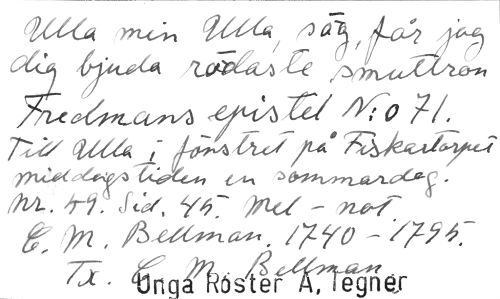 Ulla min Ulla, säg, får jag
dig bjuda rödaste smultron
Fredmans epistel N:o 71.
Till Ulla i fönstret på Fiskartorpet
middagstiden en sommardag.
Nr. 49. Sid. 45. Mel - not.
C. M. Bellman. 1740 - 1795.
Tx. C. M. Bellman
Unga Röster A, Tegner